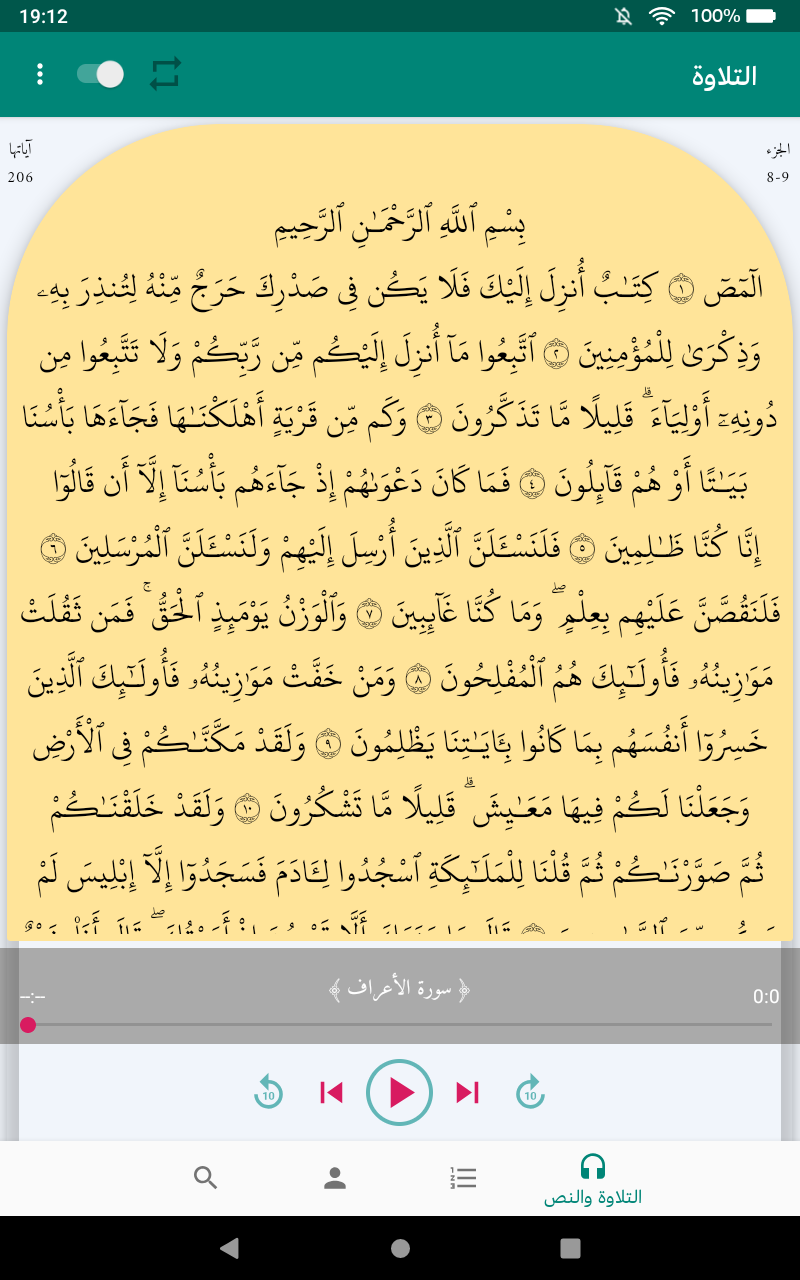 19:12 100%
التلاوة
الجزء آياتها
8-9 206
بِسْمِ ٱللَّهِ ٱلرَّحْمَـٰنِ ٱلرَّحِيمِ
الٓمٓصٓ ١ كِتَـٰبٌ أُنزِلَ إِلَيْكَ فَلَا يَكُن فِى صَدْرِكَ حَرَجٌ مِّنْهُ لِتُنذِرَ بِهِۦ
وَذِكْرَىٰ لِلْمُؤْمِنِينَ ٢ ٱتَّبِعُوا مَآ أُنزِلَ إِلَيْكُم مِّن رَّبِّكُمْ وَلَا تَتَّبِعُوا مِن
دُونِهِۦٓ أَوْلِيَآءَ ۗ قَلِيلًا مَّا تَذَكَّرُونَ ٣ وَكَم مِّن قَرْيَةٍ أَهْلَكْنَـٰهَا فَجَآءَهَا بَأْسُنَا
بَيَـٰتًا أَوْ هُمْ قَآئِلُونَ ٤ فَمَا كَانَ دَعْوَىٰهُمْ إِذْ جَآءَهُم بَأْسُنَآ إِلَّآ أَن قَالُوٓا
إِنَّا كُنَّا ظَـٰلِمِينَ ٥ فَلَنَسْـَٔلَنَّ ٱلَّذِينَ أُرْسِلَ إِلَيْهِمْ وَلَنَسْـَٔلَنَّ ٱلْمُرْسَلِينَ ٦
فَلَنَقُصَّنَّ عَلَيْهِم بِعِلْمٍ ۖ وَمَا كُنَّا غَآئِبِينَ ٧ وَٱلْوَزْنُ يَوْمَئِذٍ ٱلْحَقُّ ۚ فَمَن ثَقُلَتْ
مَوَٰزِينُهُۥ فَأُولَـٰٓئِكَ هُمُ ٱلْمُفْلِحُونَ ٨ وَمَنْ خَفَّتْ مَوَٰزِينُهُۥ فَأُولَـٰٓئِكَ ٱلَّذِينَ
خَسِرُوٓا أَنفُسَهُم بِمَا كَانُوا بِـَٔايَـٰتِنَا يَظْلِمُونَ ٩ وَلَقَدْ مَكَّنَّـٰكُمْ فِى ٱلْأَرْضِ
وَجَعَلْنَا لَكُمْ فِيهَا مَعَـٰيِشَ ۗ قَلِيلًا مَّا تَشْكُرُونَ ١٠ وَلَقَدْ خَلَقْنَـٰكُمْ
ثُمَّ صَوَّرْنَـٰكُمْ ثُمَّ قُلْنَا لِلْمَلَـٰٓئِكَةِ ٱسْجُدُوا لِـَٔادَمَ فَسَجَدُوٓا إِلَّآ إِبْلِيسَ لَمْ
--:-- ﴿ سورة الأعراف ﴾ 0:0
10 10
التلاوة والنص